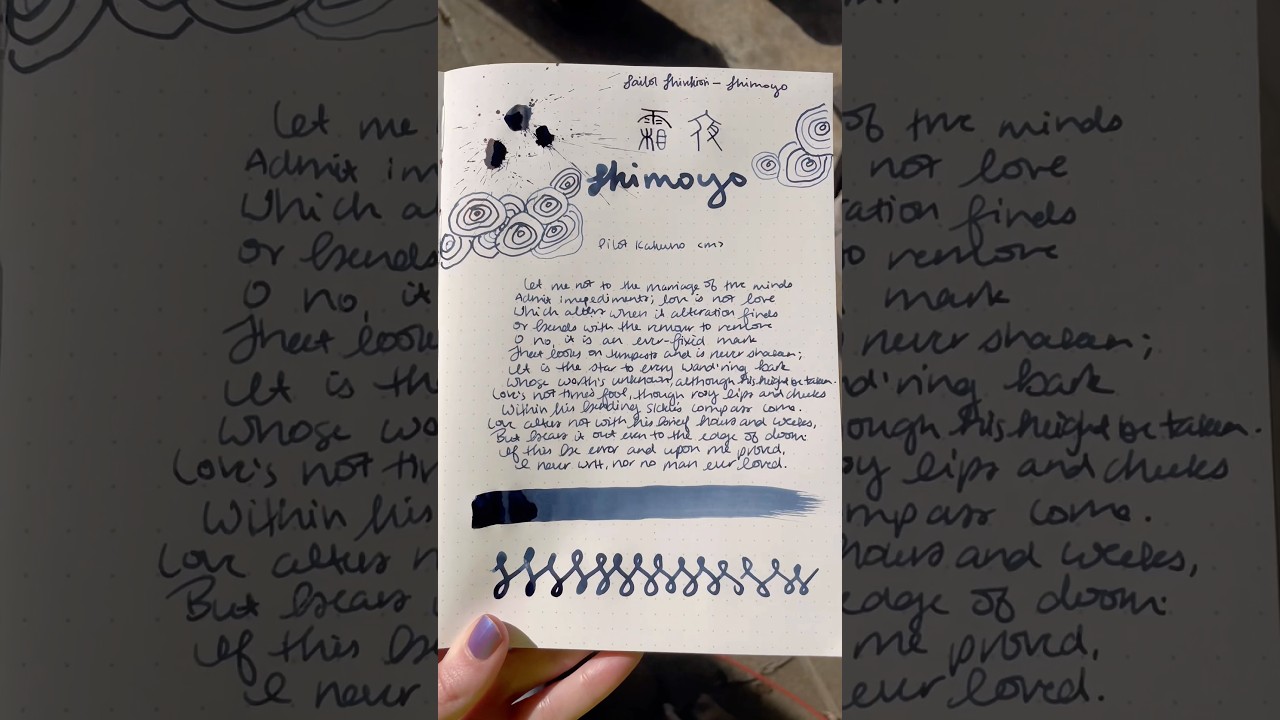 Sailor Shikiori — Shimoyo
霜夜
Shimoyo
Pilot Kakuno <M>
Let me not to the marriage of true minds
Admit impediments; love is not love
Which alters when it alteration finds
Or bends with the remover to remove
O no, it is an ever-fixid mark
That looks on tempests and is never shaken;
It is the star to every wand'ring bark
Whose worth's unknown, although his height be taken.
Love's not time's fool, though rosy lips and cheeks
Within his bending sickle's compass come.
Love alters not with his brief hours and weeks,
But bears it out even to the edge of doom:
If this be error and upon me proved,
I never writ, nor no man ever loved.